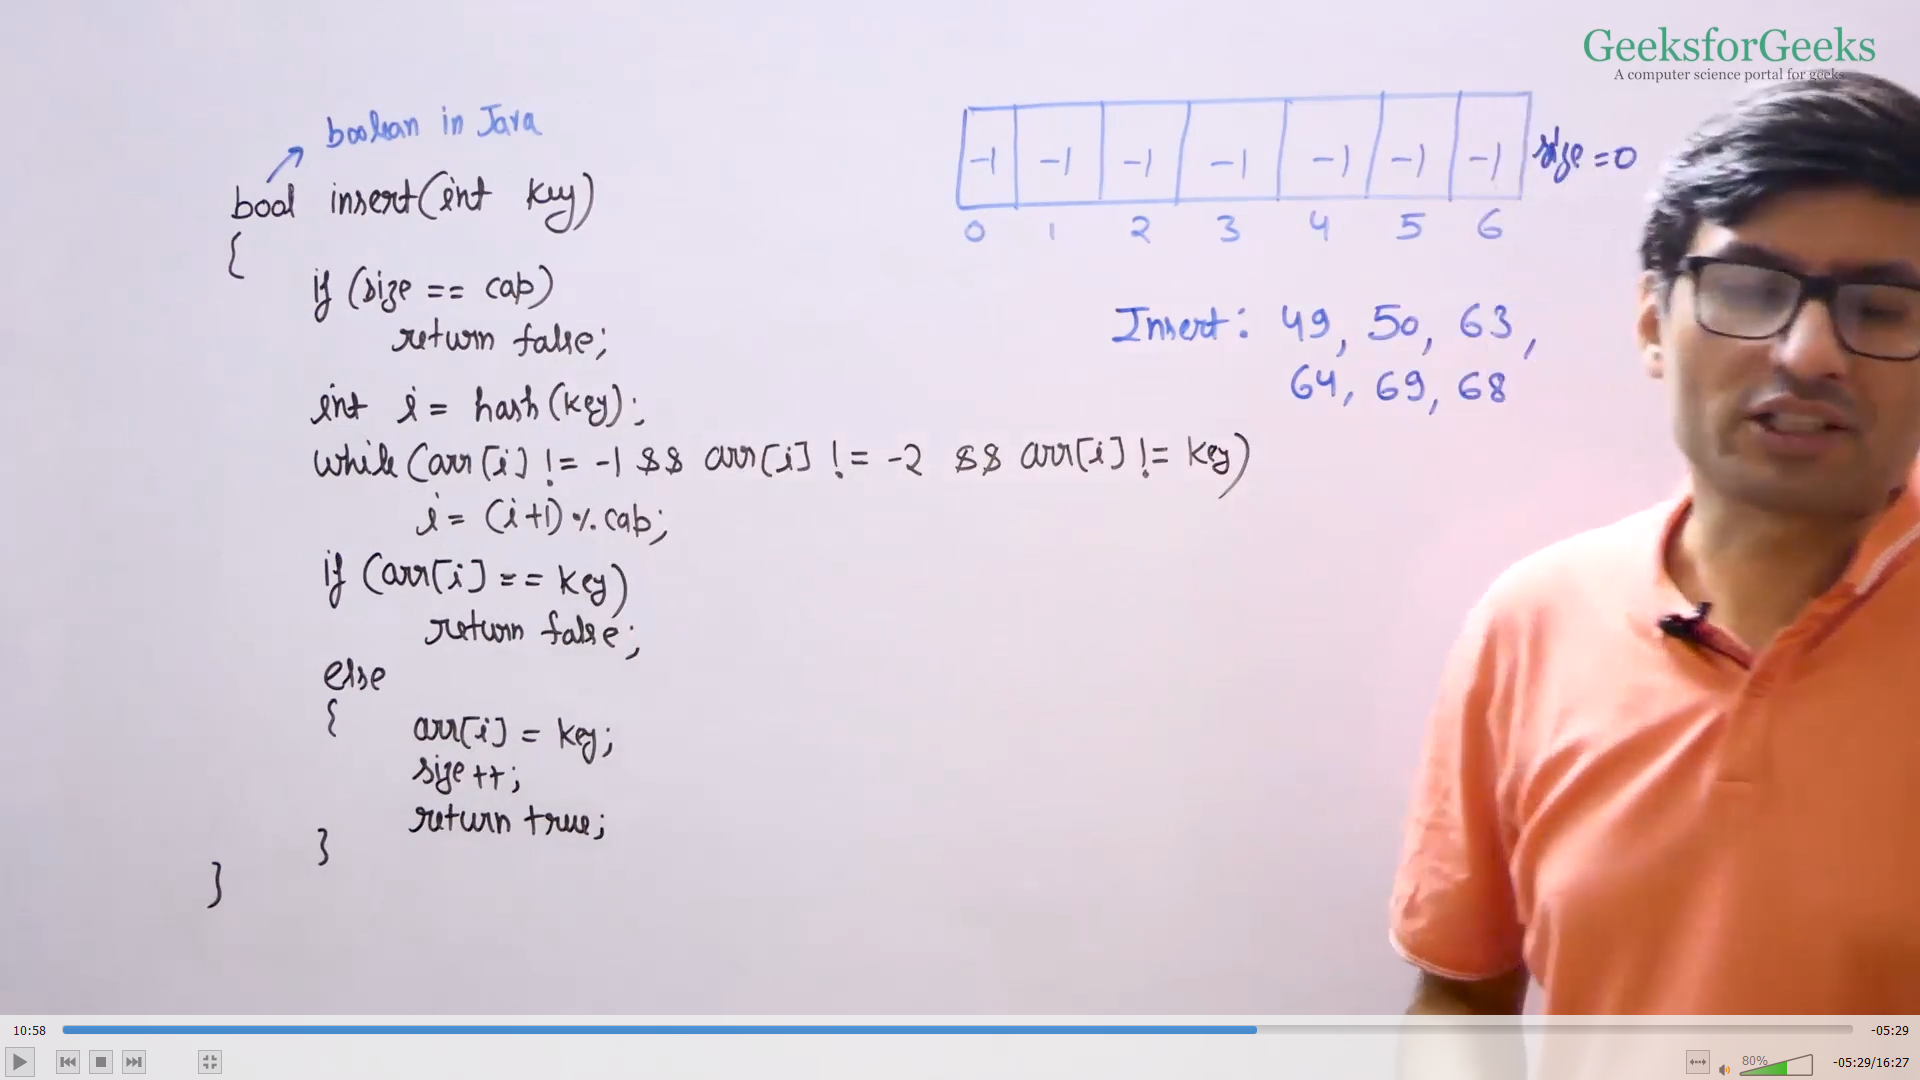 GeeksforGeeks
A computer science portal for geeks
boolean in Java
bool insert(int key)
{
if (size == cap)
return false;
int i = hash(key);
while (arr[i] != -1 && arr[i] != -2 && arr[i] != key)
i = (i+1) % cap;
if (arr[i] == key)
return false;
else
{ arr[i] = key;
size++;
return true;
}
}
-1 -1 -1 -1 -1 -1 -1 size = 0
0 1 2 3 4 5 6
Insert: 49, 50, 63,
64, 69, 68
10:58 -05:29
80% -05:29/16:27